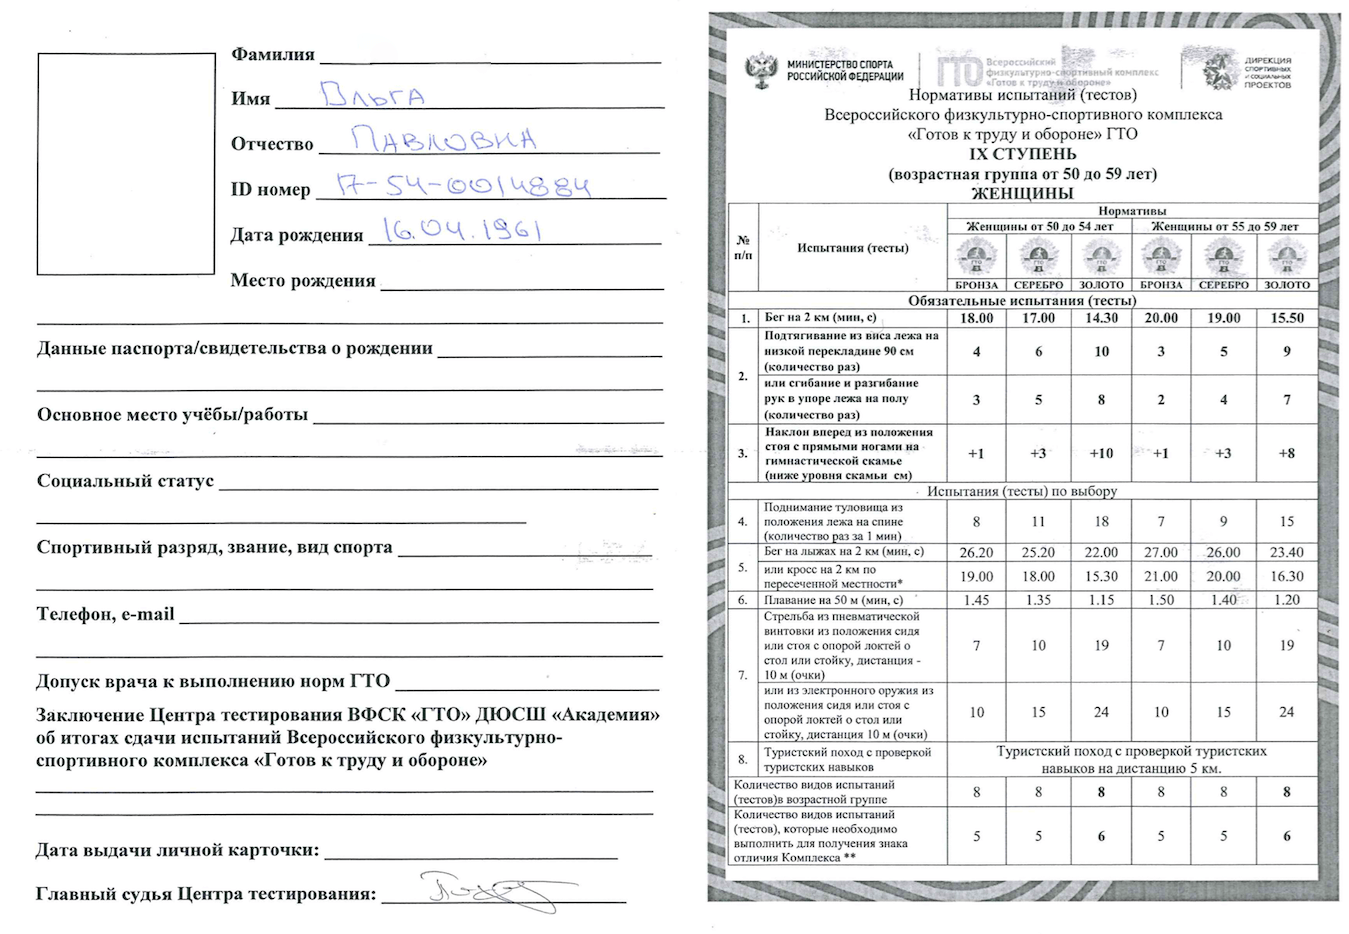 Фамилия
Имя Ольга
Отчество Павловна
ID номер 17-54-0014884
Дата рождения 16.04.1961
Место рождения
Данные паспорта/свидетельства о рождении
Основное место учёбы/работы
Социальный статус
Спортивный разряд, звание, вид спорта
Телефон, e-mail
Допуск врача к выполнению норм ГТО
Заключение Центра тестирования ВФСК «ГТО» ДЮСШ «Академия»
об итогах сдачи испытаний Всероссийского физкультурно-
спортивного комплекса «Готов к труду и обороне»
Дата выдачи личной карточки:
Главный судья Центра тестирования:
МИНИСТЕРСТВО СПОРТА
РОССИЙСКОЙ ФЕДЕРАЦИИ
ГТО
Всероссийский
физкультурно-спортивный комплекс
«Готов к труду и обороне»
ДИРЕКЦИЯ
СПОРТИВНЫХ
и СОЦИАЛЬНЫХ
ПРОЕКТОВ
Нормативы испытаний (тестов)
Всероссийского физкультурно-спортивного комплекса
«Готов к труду и обороне» ГТО
IX СТУПЕНЬ
(возрастная группа от 50 до 59 лет)
ЖЕНЩИНЫ
№
п/п
Испытания (тесты)
Нормативы
Женщины от 50 до 54 лет Женщины от 55 до 59 лет
ГТО ГТО ГТО ГТО ГТО ГТО
БРОНЗА СЕРЕБРО ЗОЛОТО БРОНЗА СЕРЕБРО ЗОЛОТО
Обязательные испытания (тесты)
1. Бег на 2 км (мин, с) 18.00 17.00 14.30 20.00 19.00 15.50
2.
Подтягивание из виса лежа на
низкой перекладине 90 см
(количество раз)
4 6 10 3 5 9
или сгибание и разгибание
рук в упоре лежа на полу
(количество раз)
3 5 8 2 4 7
3.
Наклон вперед из положения
стоя с прямыми ногами на
гимнастической скамье
(ниже уровня скамьи см)
+1 +3 +10 +1 +3 +8
Испытания (тесты) по выбору
4.
Поднимание туловища из
положения лежа на спине
(количество раз за 1 мин)
8 11 18 7 9 15
5.
Бег на лыжах на 2 км (мин, с) 26.20 25.20 22.00 27.00 26.00 23.40
или кросс на 2 км по
пересеченной местности*
19.00 18.00 15.30 21.00 20.00 16.30
6. Плавание на 50 м (мин, с) 1.45 1.35 1.15 1.50 1.40 1.20
7.
Стрельба из пневматической
винтовки из положения сидя
или стоя с опорой локтей о
стол или стойку, дистанция -
10 м (очки)
7 10 19 7 10 19
или из электронного оружия из
положения сидя или стоя с
опорой локтей о стол или
стойку, дистанция 10 м (очки)
10 15 24 10 15 24
8.
Туристский поход с проверкой
туристских навыков
Туристский поход с проверкой туристских
навыков на дистанцию 5 км.
Количество видов испытаний
(тестов)в возрастной группе
8 8 8 8 8 8
Количество видов испытаний
(тестов), которые необходимо
выполнить для получения знака
отличия Комплекса **
5 5 6 5 5 6